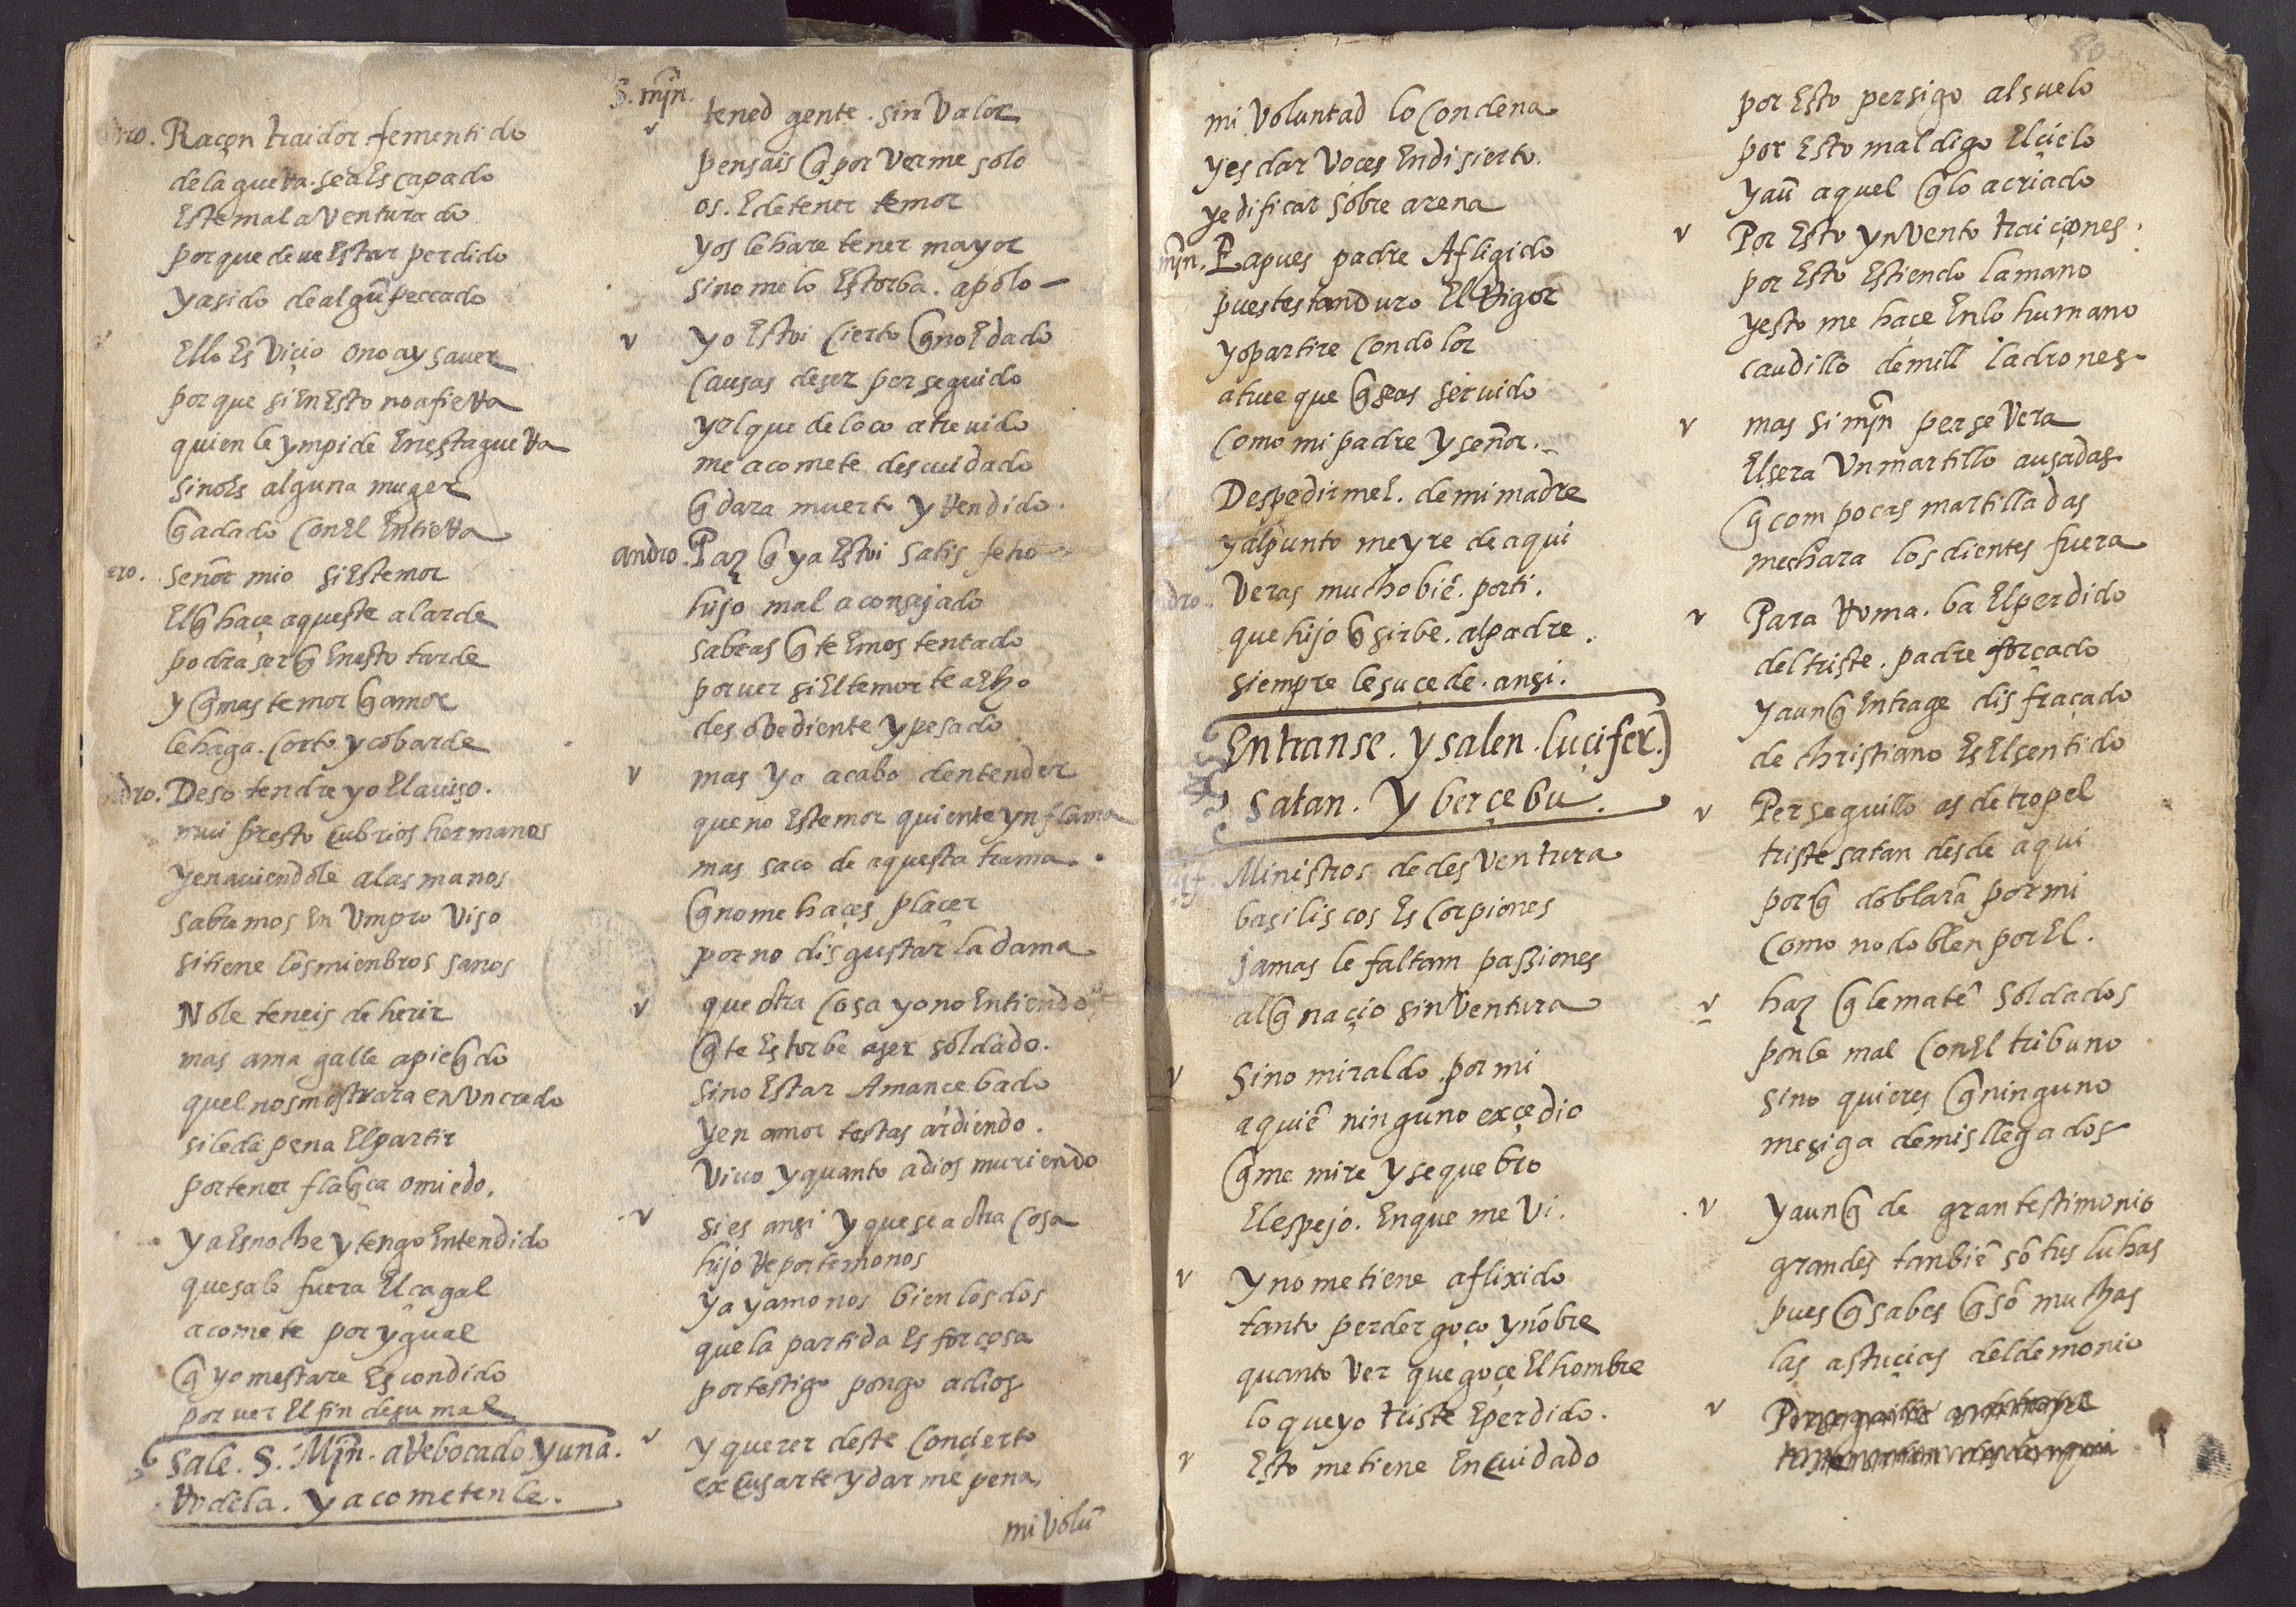 dro. Raçon traidor fementido
de la gueRa. se a Escapado
Este mal aVenturado
porque deue Estar perdido
y a sido de algũ peccado
Ello Es Viçio o no ay sauer
porque si En Esto no afieRa
quien le ympide En esta gueRa
sino Es alguna muger
q̃ a dado con El En tieRa
ero. señor mio si Es temor
El q̃ haçe aqueste alarde
podra ser q̃ En esto tarde
y q̃ mas temor q̃ amor
le haga. corto y cobarde
ndro. Deso tendre yo El auiso.
mui presto cubrios hermanos
y en auiendole a las manos
sabremos En Vmproviso
si tiene los mienbros sanos
No le teneis de herir
mas amagalle a pie q̃do
quel nos mostrara en Vn credo
si le da pena El partir
por tener flaq̃ça o miedo.
ya Es noche y tengo Entendido
que sale fuera El çagal
acomete por ygual
q̃ yo mestare Escondido
por uer El fin de su mal
Sale. S. Mȷ̃n. aRebocado. y una.
Rodela. y acometenle.
S. mȷ̃n.
tened gente. sin Valor
pensais q̃ por Verme solo
os. E de tener temor
yos le hare tener mayor
si no me lo Estorba. apolo
yo Estoi cierto q̃ no E dado
causas de ser perseguido
y al que de loco atreuido
me acomete descuidado
q̃dara muerto y Rendido.
andro. Paz q̃ ya Estoi satisfecho
hijo mal aconsejado
sabras q̃ te Emos tentado
por uer si El temor te a Eho
desobediente y pesado
mas yo acabo dentender
que no Es temor quien te ynflama
mas saco de aquesta trama.
q̃ no me haçes plaçer
por no disgustar la dama
que otra cosa yo no Entiendo
q̃ te Estorbe a ser soldado.
sino Estar Amancebado
y en amor testas ardiendo.
Viuo y quanto a dios muriendo
si es ansi y que sea otra cosa
hijo Reportemonos
yayamonos bien los dos
que la partida Es forçosa
por testigo pongo a dios
y querer deste concierto
excusarte y darme pena
mi Volũ
80
mi Voluntad lo condena
y es dar Voces En disierto.
y edificar sobre arena
mȷ̃n. Ea pues padre Afligido
pues testan duro El Rigor
yo partire con dolor
a true que q̃ seas seruido
como mi padre y señor.
Despedirme E. de mi madre
y al punto me yre de aqui
dro. Veras mucho biẽ. por ti.
que hijo q̃ sirbe. al padre.
siempre le suçede. ansi.
Entranse. y salen. luçifer.
satan. y berçebu.
luçif. Ministros de desVentura
basiliscos Escorpiones
jamas le faltam passiones
al q̃ naçio sin Ventura
Sino miraldo. por mi
a quiẽ ninguno exçedio
q̃ me mire y se quebro
El espejo. En que me Vi.
y no me tiene aflixido
tanto perder goço y nõbre
quanto Ver que goçe El hombre
lo que yo triste E perdido.
Esto me tiene En cuidado
por Esto persigo al suelo
por Esto maldigo El çielo
y aũ aquel q̃ lo a criado
Por Esto ynVento traiçiones.
por Esto Estiendo la mano
y esto me haçe En lo humano
caudillo de mill ladrones
mas si mȷ̃n perseVera
El sera Vn martillo a usadas
q̃ com pocas martilladas
mechara los dientes fuera
Para Roma. ba El perdido
del triste. padre forçado
y aunq̃ En trage disfraçado
de christiano Es El sentido
Perseguillo as de tropel
triste satan desde aqui
porq̃ doblarã por mi
como no doblen por El.
haz q̃ le matẽ soldados
ponle mal con El tribuno
si no quieres q̃ ninguno
me siga de mis llegados
y aunq̃ de gran testimonio
grandes tanbiẽ sõ tus luchas
pues q̃ sabes q̃ sõ muchas
las astuçias del demonio